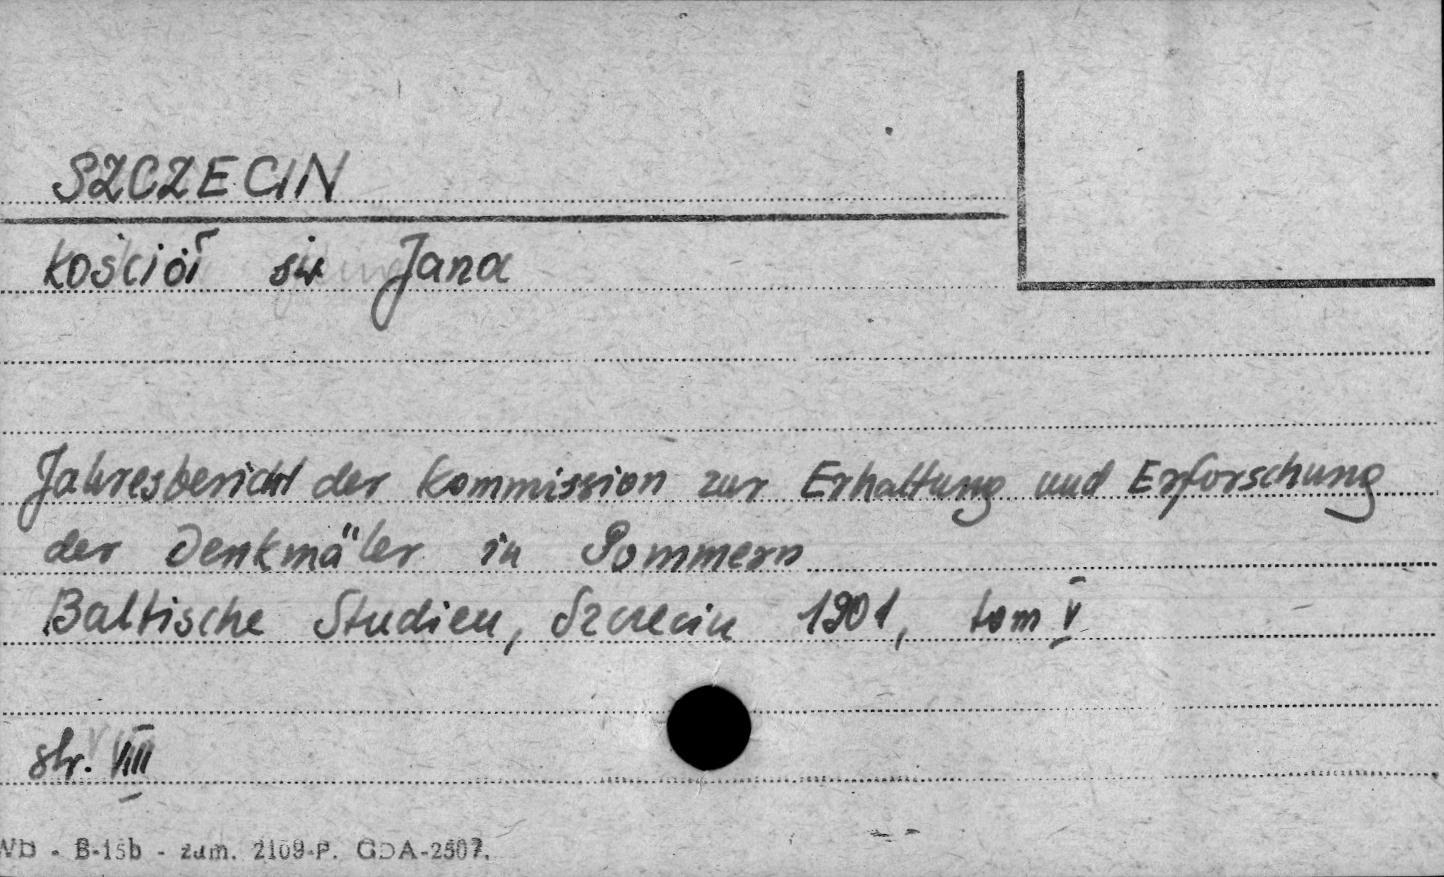 SZCZECIN
kościół św Jana
Jahresbericht der Kommission zur Erhaltung und Erforschung
der Denkmäler in Pommern
Baltische Studien, Szczecin 1901, tom V
str. VIII
Wb - B-15b - zam. 2109-P. GDA-2507.